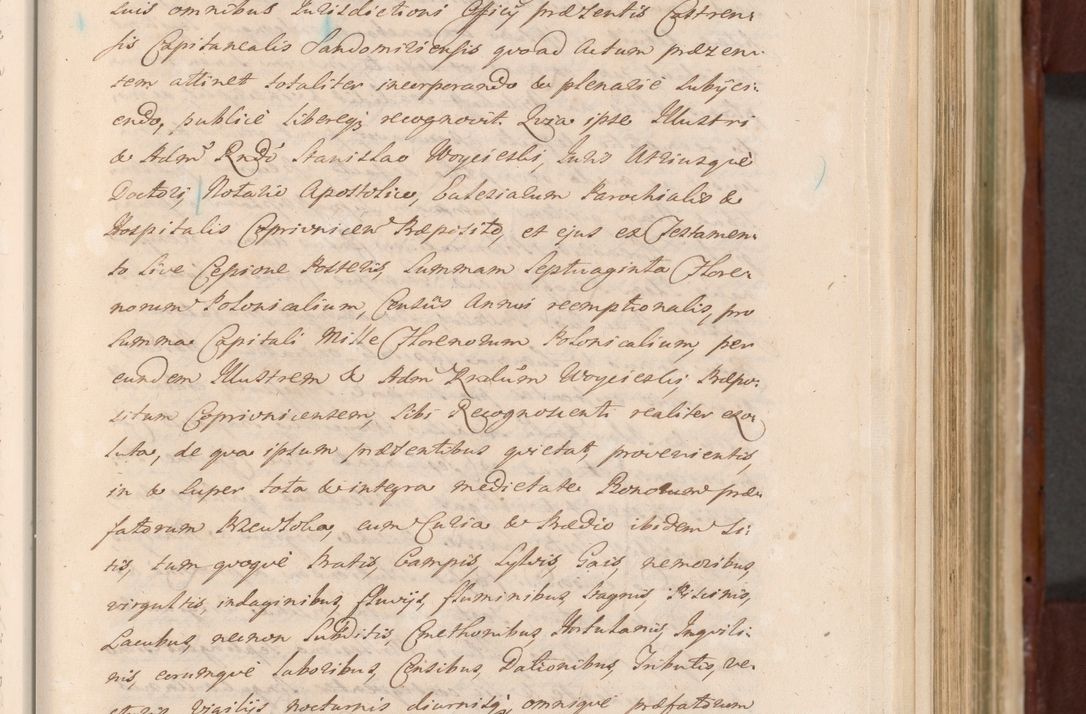 suis omnibus Jurisdictioni Officij præsentis Castren:
sis Capitanealis Sandomiriensis quo ad Actum præsen:
tem attinet totaliter incorporando & plenarie subijci:
endo, publicè libereq; recognovit. Quia ipse Illustri
& Admº Rndó Stanislao Woycieski, Juris Utriusquè
Doctori, Notario Apostolico, Ecclesiarum Parochialis &
Hospitalis Coprivnicen Præposito, et ejus ex Testamen:
to sive Cessione Posteris, summam Septuaginta Flore:
norum Polonicalium, Censûs Annui reemptionalis, pro
summa Capitali Mille Florenorum Polonicalium, per
eundem Illustrem & Adm Rndum Woycieski, Præpo:
situm Coprivnicensem, sibi Recognoscenti realiter exo:
luta, de qua ipsum præsentibus quietat, provenientis,
in & super tota & integra medietate Bonorum præ:
fatorum cum Curia & Prædio ibidem Si:
tis, tum quoquè Pratis, Campis, Sylvis, Gais, nemoribus,
virgultis, indaginibus, fluvijs, fluminibus, stagnis, Piscinis,
Lacubus, necnon Subditis, Cmethonibus, Hortulanis, Inquili:
nis, eorumquè laboribus, Censibus, Dationibus, Tributis, ve:
cturis, Vigilijs nocturnis diurnisq;, omniquè præfatorum